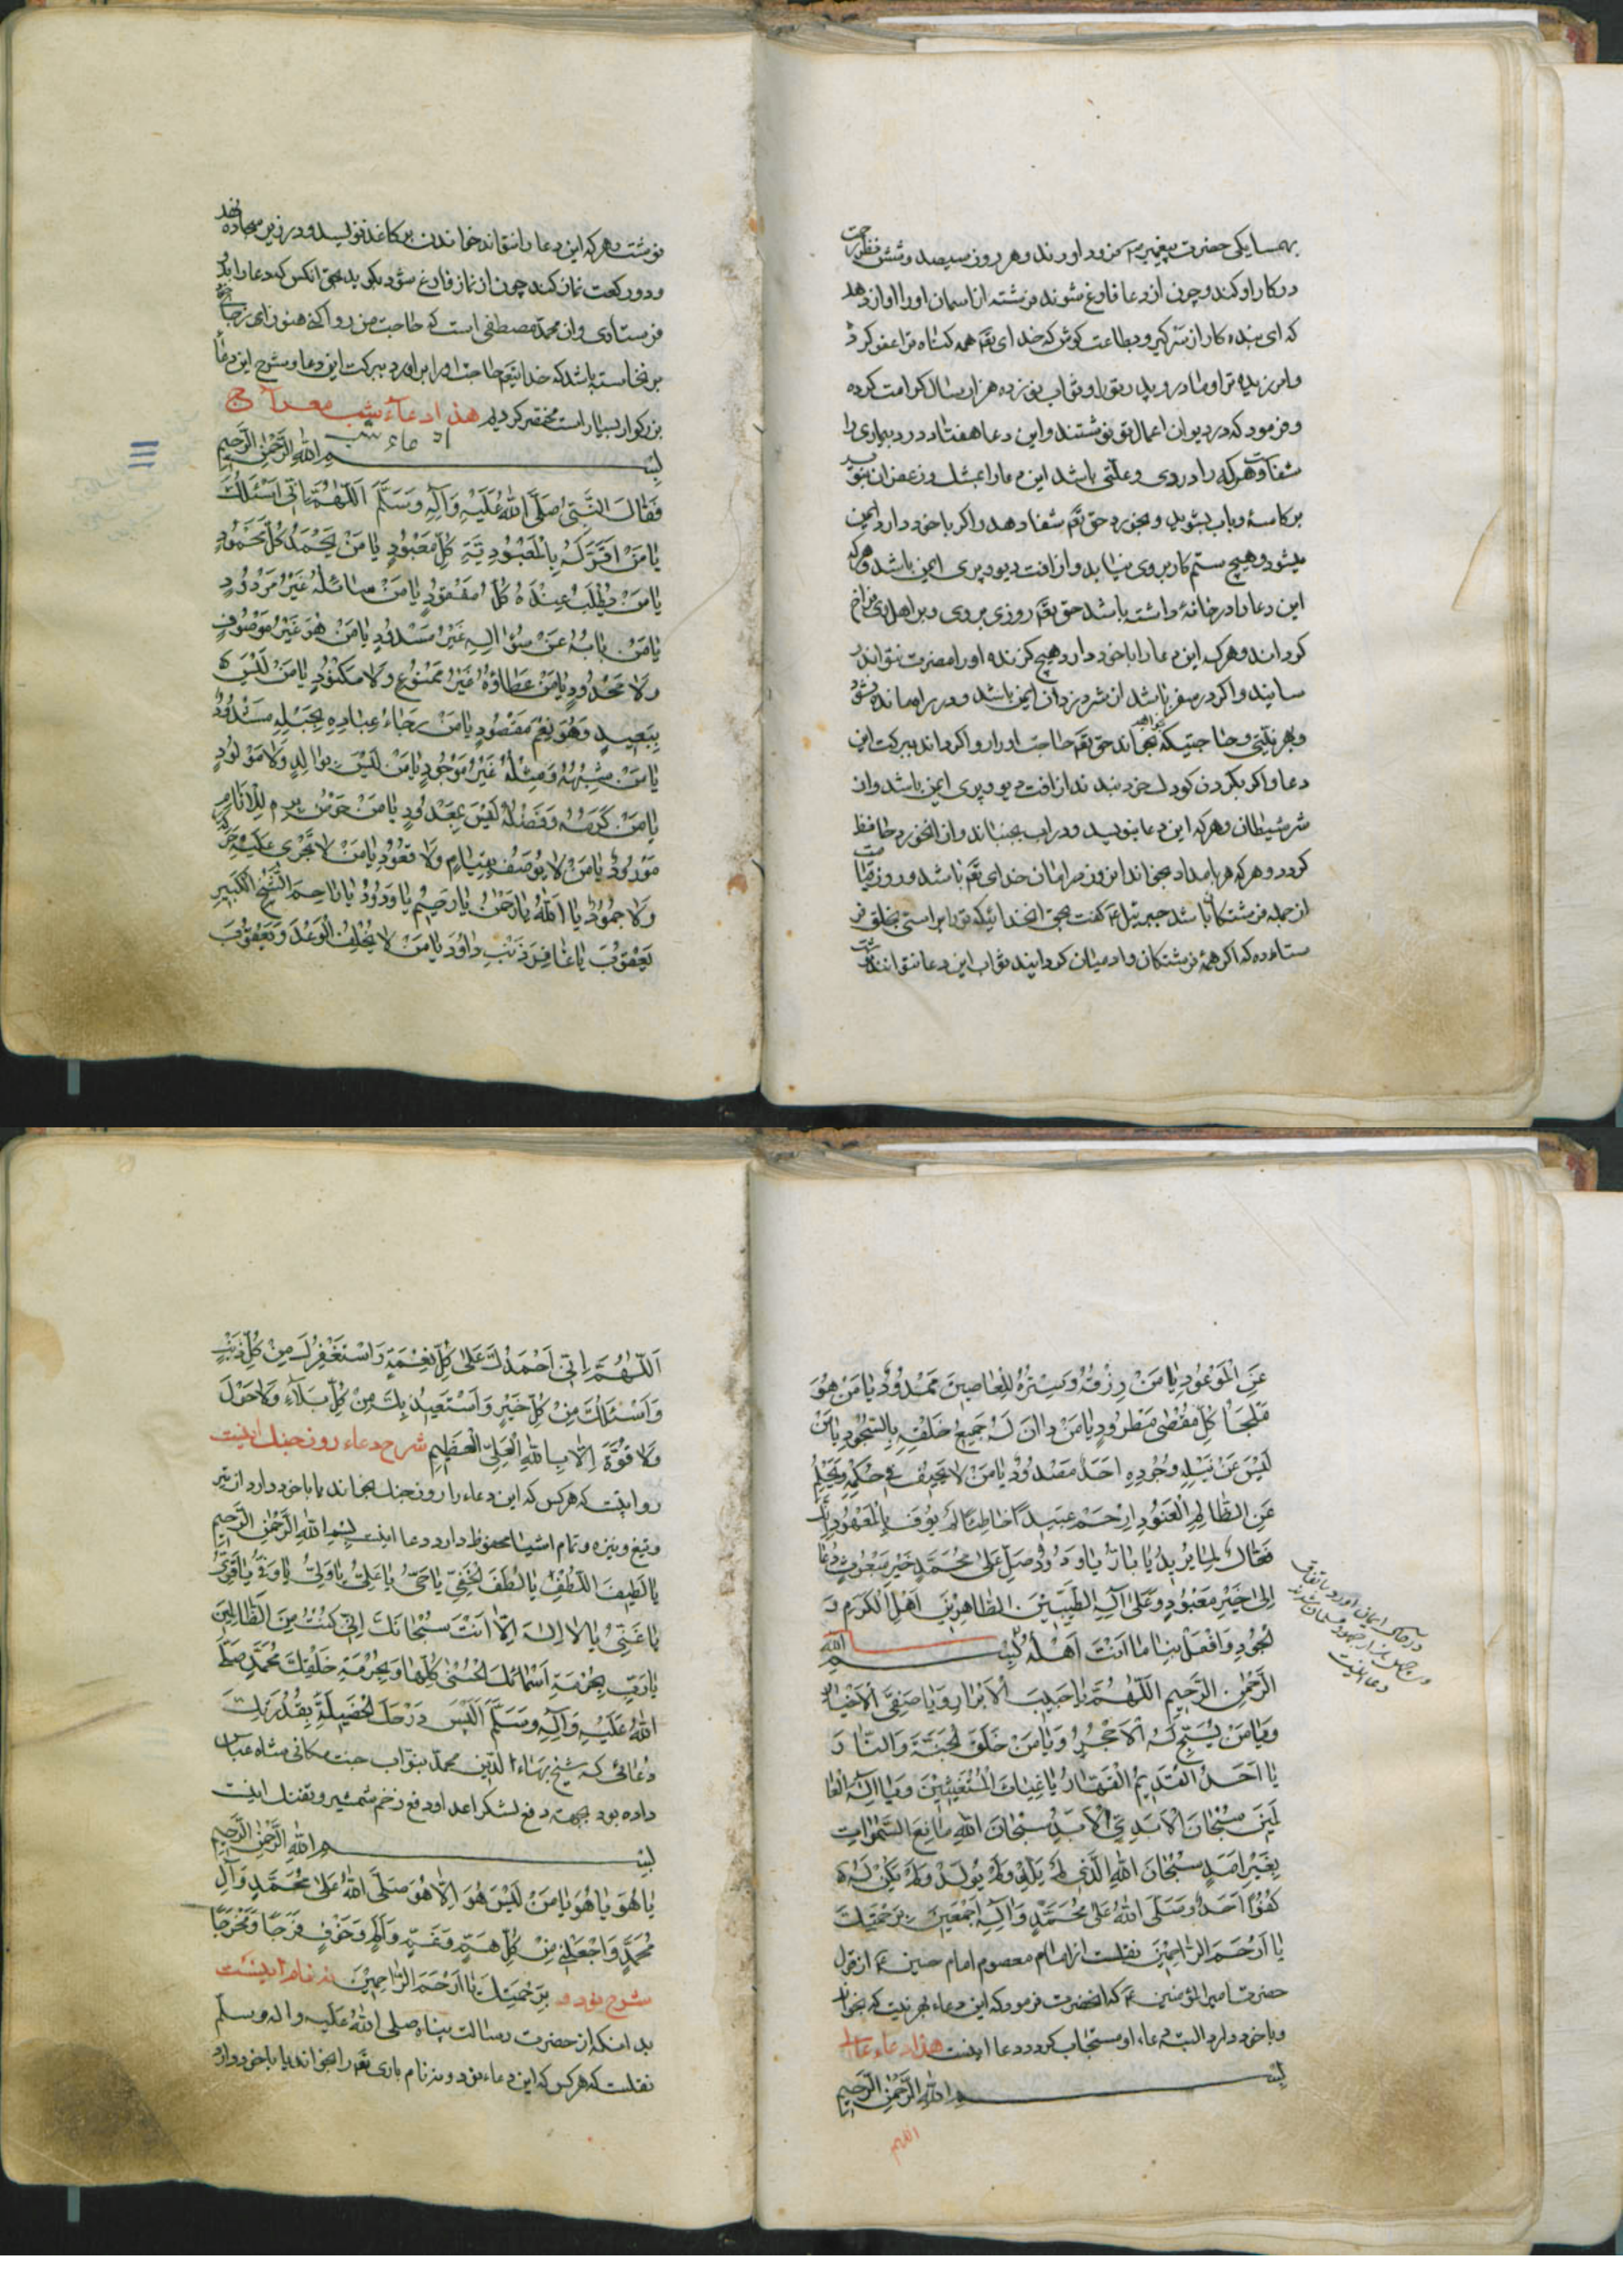 بهمسایکی حضرت پیغمبر ۴ فرود اورند وهر روز سیصد وشش نظر رحمت
در کار او کند و چون از دعا فارغ شوند فرشته از اسمان او را اواز دهد
که ای بنده کار از سر کیر و بطاعت کوش که خدای تعم همه کناه ترا عفو کرد
وامرزیده ترا ومادر و پدر تورا وثواب نوزده هزار سال کرامت کرده
وفرمود که در دیوان اعمال تو نوشتند واین دعا هفتاد درد بیماری را
شفاست وهرکه را دردی وعلتی باشد این دعا را بمشک وزعفران بنویسد
بر کاسهٔ وباب بشوید وبخورد حق تعم شفا دهد واکر باخود دارد ایمن
میشود وهیچ ستم کار بروی نیابد واز افت دیو وپری ایمن باشد وهرکه
این دعا را در خانهٔ داشته باشد حق تعم روزی بروی وبر اهل وی فراخ
کرداند وهرکه این دعا را باخود دارد هیچ کزنده اورا مضرت نتواند ر
سانید واکر در سفر باشد از شر دزدان ایمن باشد ودر راه مانده نشود
وبهر نیتی وحاجتیکه بخواند حق تعم حاجت اورا روا کرداند ببرکت این
دعا واکر بکردن کودک خرد بندند از افت دیو وپری ایمن باشد واز
شر شیطان وهرکه این دعا بنویسد ودر اب بجنباند وان ابخورد حافظ
کردد وهرکه هر بامداد بخواند انروز در امان خدای تعم باشد وروز قیامت
از جمله فرشتکان باشد جبرئیل ع کفت بحق انخدائیکه تورا براستی بخلق فر
ستاده که اکر همهٔ فرشتکان وادمیان کرد ایند ثواب این دعا نتوانند
نوشت وهرکه این دعا را نتواند خواندن بر کاغذ نویسد ودر زیر سجاده نهد
ودو رکعت نماز کند چون از نماز فارغ شود بکوید بحق انکس که دعا را بدو
فرستادی وان محمد مصطفی است که حاجت من روا کن هنوز از جای
بر نخاسته باشد که خدایتعم حاجت اورا براورد ببرکت این دعا وشرح این دعا
بزرکوار بسیار است مختصر کردیم هذا دعآء شب معراج
بسم الله الرحمن الرحیم
فَقَالَ النَّبِيُّ صَلَّى اللهُ عَلَيْهِ وَآلِهِ وَسَلَّمَ اَللّهُمَّ اِنّى اَسْئَلُكَ
يَا مَنْ اَقَرَّ لَهُ بِالْمَعْبُودِيَّةِ كُلُّ مَعْبُودٍ يَا مَنْ يَحْمَدُهُ كُلُّ مَحْمُودٍ
يَا مَنْ يُطْلَبُ عِنْدَهُ كُلُّ مَفْقُودٍ يَا مَنْ سَائِلُهُ غَيْرُ مَرْدُودٍ
يَا مَنْ بَابُهُ عَنْ سُؤَالِهِ غَيْرُ مَسْدُودٍ يَا مَنْ هُوَ غَيْرُ مَوْصُوفٍ
وَلَا مَحْدُودٍ يَا مَنْ عَطَاؤُهُ غَيْرُ مَمْنُوعٍ وَلَا مَنْكُودٍ يَا مَنْ لَيْسَ
بِبَعِيدٍ وَهُوَ نِعْمَ مَقْصُودٍ يَا مَنْ رَجَاءُ عِبَادِهِ بِحَبْلِهِ مَشْدُودٌ
يَا مَنْ شِبْهُهُ وَمِثْلُهُ غَيْرُ مَوْجُودٍ يَا مَنْ لَيْسَ بِوَالِدٍ وَلَا مَوْلُودٍ
يَا مَنْ كَرَمُهُ وَفَضْلُهُ لَيْسَ بِمَعْدُودٍ يَا مَنْ حَوْضُ بِرِّهِ لِلْاَنَامِ
مَوْرُودٌ يَا مَنْ لَا يُوصَفُ بِقِيَامٍ وَلَا قُعُودٍ يَا مَنْ لَا تَجْرِى عَلَيْهِ حَرَكَةٌ
وَلَا جُمُودٌ يَا اَللهُ يَا رَحْمنُ يَا رَحِيمُ يَا وَدُودُ يَا رَاحِمَ الشَّيْخِ الْكَبِيرِ
يَعْقُوبَ يَا غَافِرَ ذَنْبِ دَاوُدَ يَا مَنْ لَا يُخْلِفُ الْوَعْدَ وَيَعْفُو
عَنِ الْمَوْعُودِ يَا مَنْ رِزْقُهُ وَسِتْرُهُ لِلْعَاصِينَ مَمْدُودٌ يَا مَنْ هُوَ
مَلْجَأُ كُلِّ مُقْصًى مَطْرُودٍ يَا مَنْ دَانَ لَهُ جَمِيعُ خَلْقِهِ بِالسُّجُودِ يَا مَنْ
لَيْسَ عَنْ نَيْلِهِ وَجُودِهِ اَحَدٌ مَصْدُودٌ يَا مَنْ لَا يَحِيفُ فِى حُكْمِهِ وَيَحْلُمُ
عَنِ الظَّالِمِ الْعَنُودِ اِرْحَمْ عَبِيدًا خَاطِئًا لَمْ يُوفِ بِالْعُهُودِ اِنَّكَ
فَعَّالٌ لِمَا يُرِيدُ يَا بَارُّ يَا وَدُودُ صَلِّ عَلَى مُحَمَّدٍ خَيْرِ مَبْعُوثٍ دَعَا
اِلَى خَيْرِ مَعْبُودٍ وَعَلَى آلِهِ الطَّيِّبِينَ الطَّاهِرِينَ اَهْلِ الْكَرَمِ وَ
الْجُودِ وَافْعَلْ بِنَا مَا اَنْتَ اَهْلُهُ بسم الله
الرَّحْمنِ الرَّحِيمِ اَللّهُمَّ يَا حَبِيبَ الْاَبْرَارِ وَيَا صَفِىَّ الْاَخْيَارِ
وَيَا مَنْ يُسَبِّحُ لَهُ الْاَحْجَارُ وَيَا مَنْ خَلَقَ الْجَنَّةَ وَالنَّارَ
يَا اَحَدُ الْقَدِيمُ الْقَهَّارُ يَا غِيَاثَ الْمُسْتَغِيثِينَ وَيَا اِلهَ الْعَا
لَمِينَ سُبْحَانَ الْاَبَدِىِّ الْاَبَدِ سُبْحَانَ اللهِ رَافِعِ السَّموَاتِ
بِغَيْرِ عَمَدٍ سُبْحَانَ اللهِ الَّذِى لَمْ يَلِدْ وَلَمْ يُولَدْ وَلَمْ يَكُنْ لَهُ
كُفُوًا اَحَدٌ وَصَلَّى اللهُ عَلَى مُحَمَّدٍ وَآلِهِ اَجْمَعِينَ بِرَحْمَتِكَ
يَا اَرْحَمَ الرَّاحِمِينَ نقلست از امام معصوم امام حسین ع از قول
حضرت امیرالمؤمنین ع که انحضرت فرمود که این دعاء بهر نیت که بخواند
وباخود دارد البته دعاء او مستجاب کردد دعا اینست هذا دعاء
بسم الله الرحمن الرحیم
اللهم
اَللّهُمَّ اِنّى اَحْمَدُكَ عَلَى كُلِّ نِعْمَةٍ وَاَسْتَغْفِرُكَ مِنْ كُلِّ ذَنْبٍ
وَاَسْئَلُكَ مِنْ كُلِّ خَيْرٍ وَاَسْتَعِيذُ بِكَ مِنْ كُلِّ بَلَاءٍ وَلَا حَوْلَ
وَلَا قُوَّةَ اِلَّا بِاللهِ الْعَلِىِّ الْعَظِيمِ شرح دعاء روز جنك اینست
روایتست که هر کس که این دعاء را روز جنك بخواند یا باخود دارد از تیر
وتیغ ونیزه وتمام اشیا محفوظ دارد دعا اینست بسم الله الرحمن الرحیم
يَا لَطِيفَ اللُّطْفِ يَا لُطْفَ الْخَفِىِّ يَا حَىُّ يَا عَلِىُّ يَا وَلِىُّ يَا وَفِىُّ يَا قَوِىُّ
يَا غَنِىُّ يَا لَا اِلهَ اِلَّا اَنْتَ سُبْحَانَكَ اِنِّى كُنْتُ مِنَ الظَّالِمِينَ
يَا رَبِّ بِحُرْمَةِ اَسْمَائِكَ الْحُسْنَى كُلِّهَا وَبِحُرْمَةِ خَلْقِكَ مُحَمَّدٍ صَلَّى
اللهُ عَلَيْهِ وَآلِهِ وَسَلَّمَ بِقُدْرَتِكَ
دعائی که شیخ بهاءالدین محمد بنواب جنت مکانی شاه عباس
داده بود بجهت دفع لشکر اعدا ودفع زخم شمشیر وتفنك اینست
بسم الله الرحمن الرحیم
يَا هُوَ يَا هُوَ يَا مَنْ لَيْسَ هُوَ اِلَّا هُوَ صَلَّى اللهُ عَلَى مُحَمَّدٍ وَآلِ
مُحَمَّدٍ وَاجْعَلْ لِى مِنْ كُلِّ هَمٍّ وَغَمٍّ وَاَلَمٍ وَخَوْفٍ فَرَجًا وَمَخْرَجًا
بِرَحْمَتِكَ يَا اَرْحَمَ الرَّاحِمِينَ شرح نود و نه نام اینست
بدانکه از حضرت رسالت پناه صلی الله علیه واله وسلم
نقلست که هر کس که این دعاء نود ونه نام باری تعم را بخواند یا باخود دارد